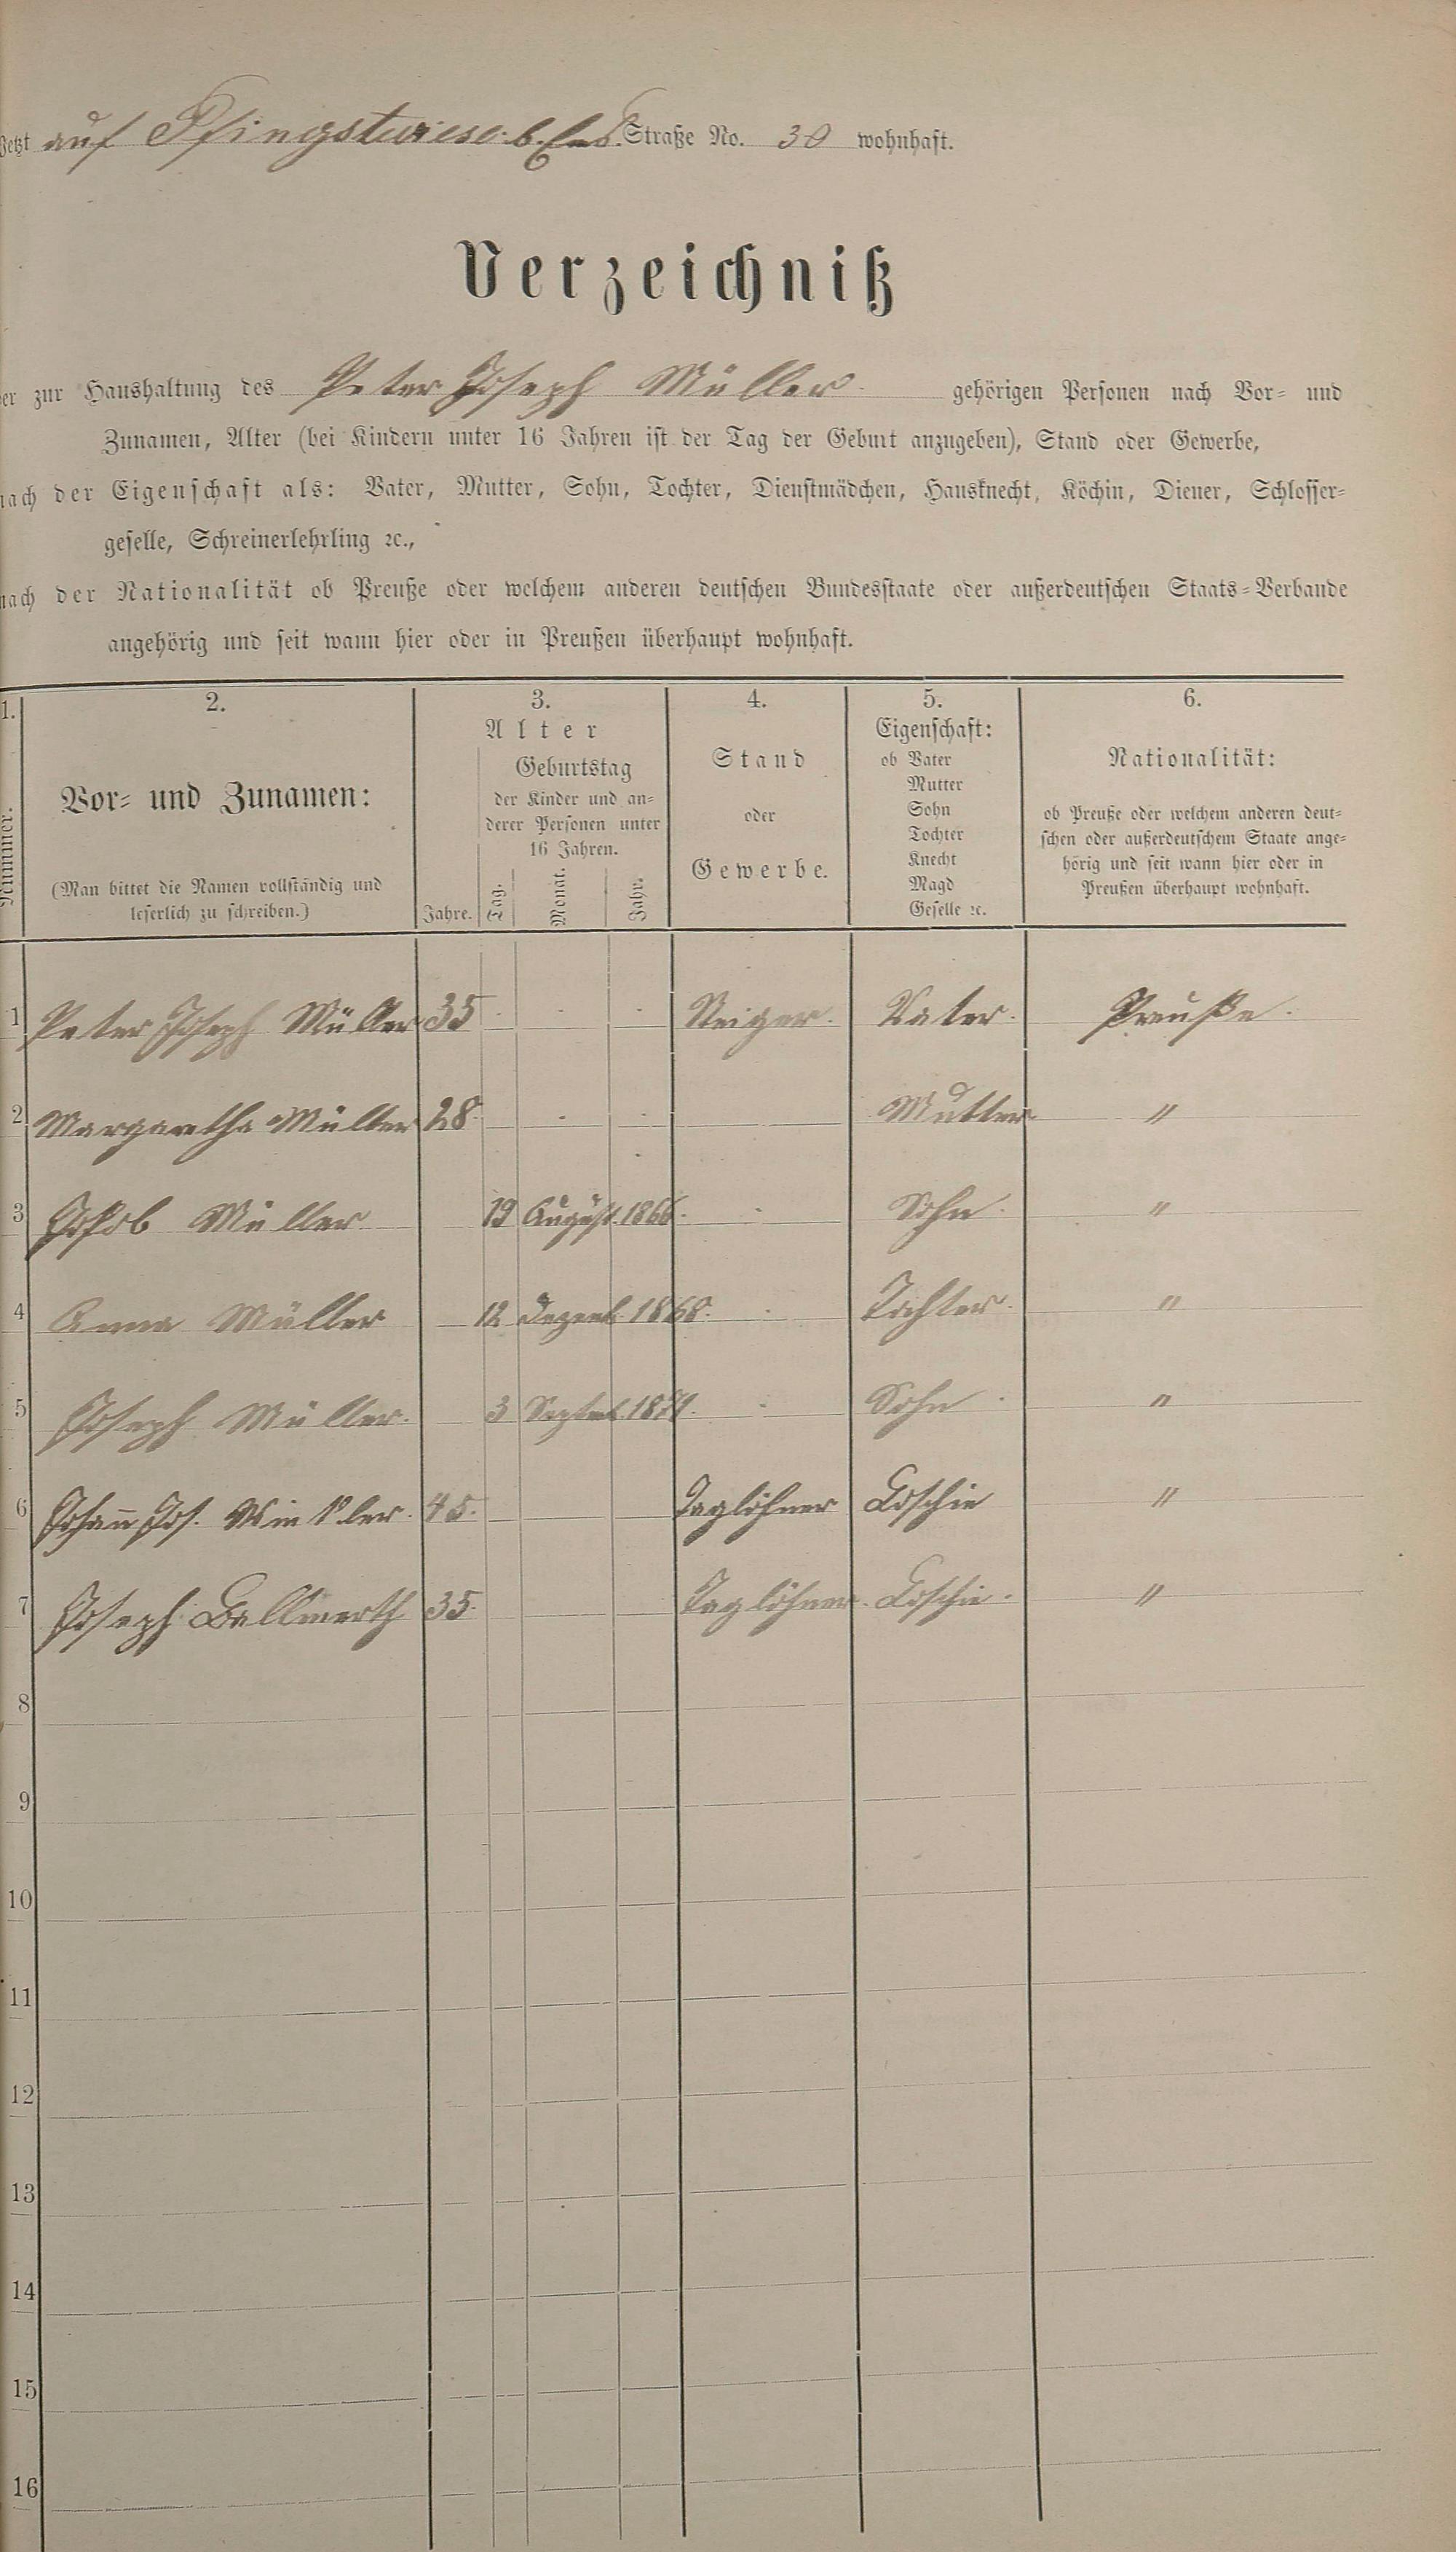 Jetzt auf Pfingstwiese b. Ems Straße No. 30 wohnhaft.
Verzeichniß
der zur Haushaltung des Peter Joseph Müller gehörigen Personen nach Vor- und
Zunamen, Alter (bei Kindern unter 16 Jahren ist der Tag der Geburt anzugeben), Stand oder Gewerbe,
nach der Eigenschaft als: Vater, Mutter, Sohn, Tochter, Dienstmädchen, Hausknecht, Köchin, Diener, Schlosser-
geselle, Schreinerlehrling ꝛc.,
nach der Nationalität ob Preuße oder welchem anderen deutschen Bundesstaate oder außerdeutschen Staats-Verbande
angehörig und seit wann hier oder in Preußen überhaupt wohnhaft.
1.
Nummer.
2.
Vor- und Zunamen:
(Man bittet die Namen vollständig und
leserlich zu schreiben.)
3.
Alter
Geburtstag
der Kinder und an-
derer Personen unter
16 Jahren.
Jahre. Tag. Monat. Jahr.
4.
Stand
oder
Gewerbe.
5.
Eigenschaft:
ob Vater
Mutter
Sohn
Tochter
Knecht
Magd
Geselle ꝛc.
6.
Nationalität:
ob Preuße oder welchem anderen deut-
schen oder außerdeutschem Staate ange-
hörig und seit wann hier oder in
Preußen überhaupt wohnhaft.
1 Peter Joseph Müller 35 Steiger. Vater. Preuße.
2 Margaretha Müller 28 Mutter "
3 Jakob Müller 19 August 1866. Sohn. "
4 Anna Müller 12 Dezemb. 1868. Tochter. "
5 Joseph Müller. 3 Septemb. 1871. Sohn "
6 Johann Jos. Winkler. 45. Taglöhner "
7 Joseph 35. Taglöhner "
8
9
10
11
12
13
14
15
16